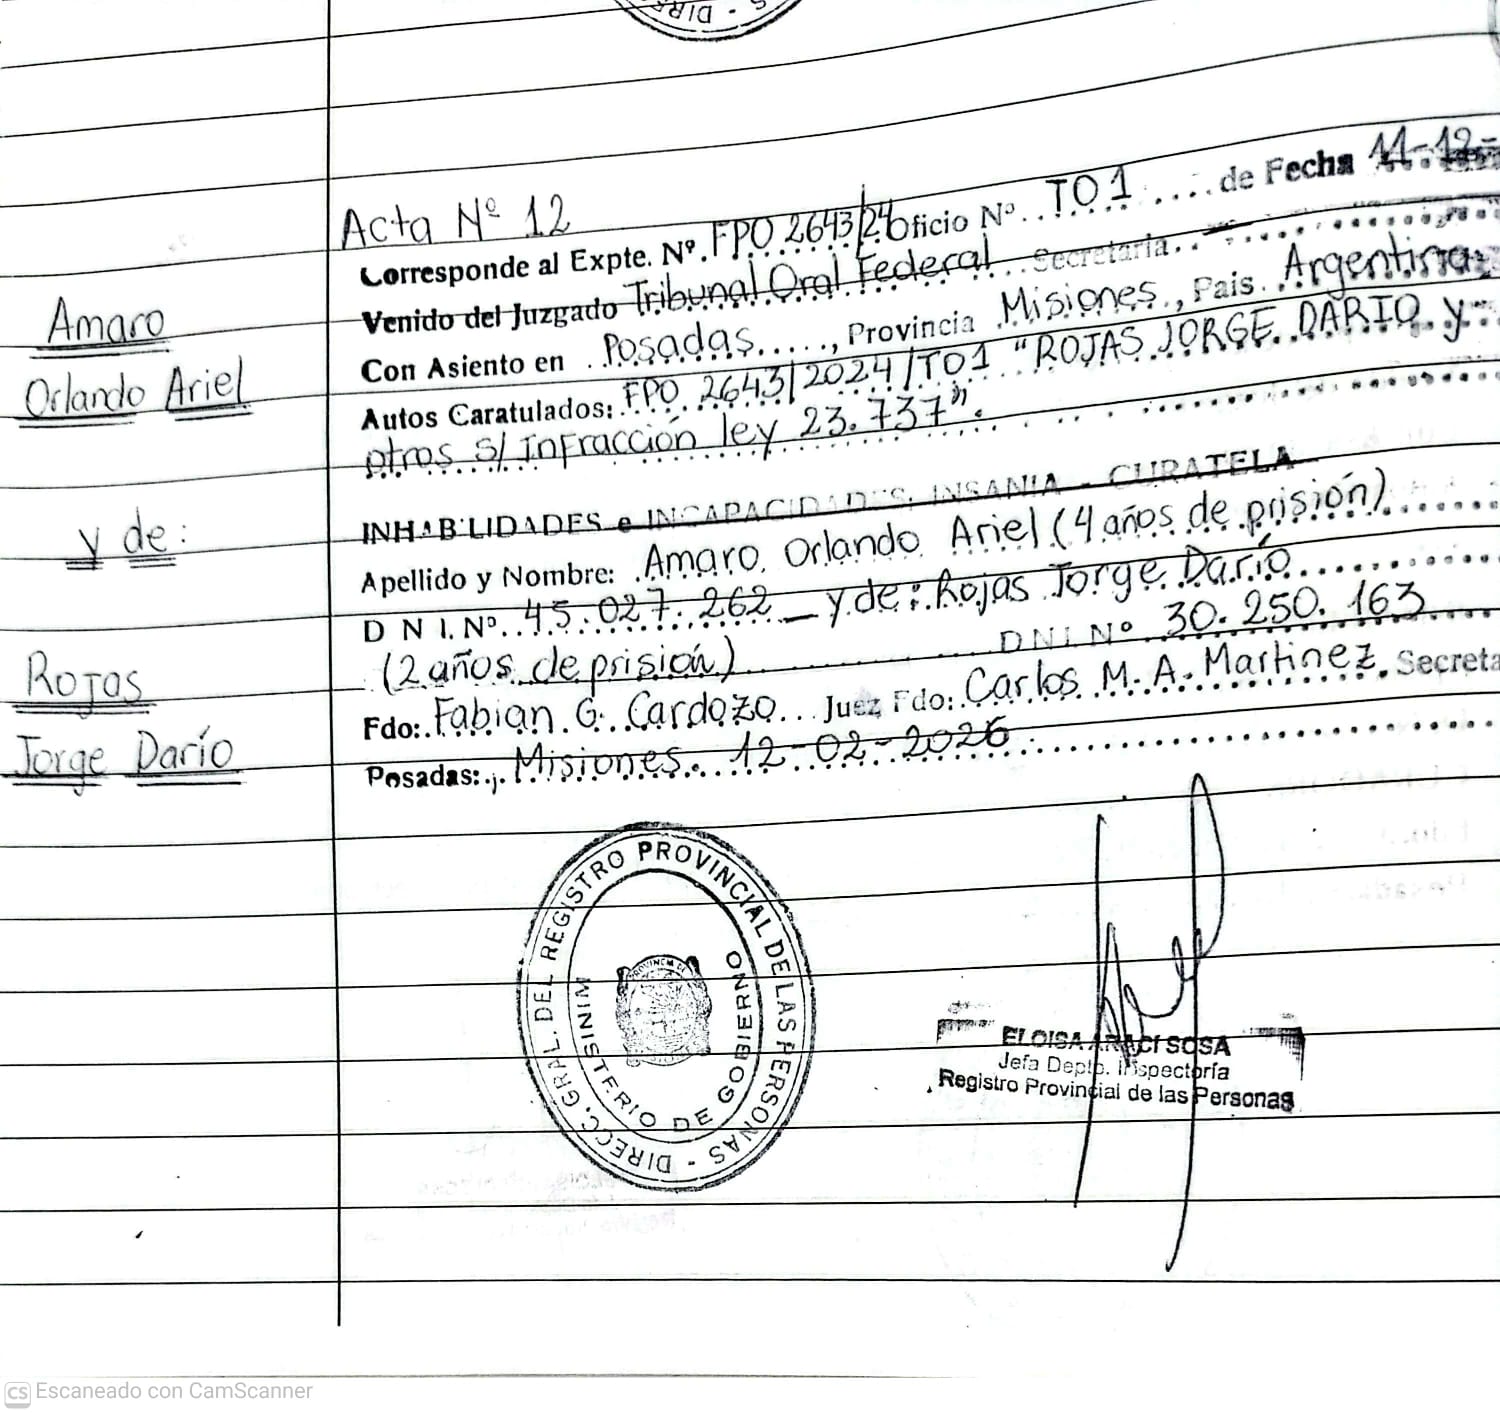 DIRE
Acta Nº 12
Corresponde al Expte. Nº. FPO 2643/24 Oficio Nº. TO1 .... de Fecha 11-12-
Venido del Juzgado Tribunal Oral Federal Secretaria..
Con Asiento en Posadas....., Provincia Misiones., Pais. Argentina
Autos Caratulados: FPO 2643/2024/TO1 "ROJAS JORGE DARIO y
otros s/ infracción ley 23.737".
INHABILIDADES e INCAPACIDADES, INSANIA - CURATELA
Apellido y Nombre: Amaro Orlando Ariel (4 años de prisión)
D N I. Nº. 45.027.262 _ y de: Rojas Jorge Darío
(2 años de prisión) DNI Nº 30.250.163
Fdo: Fabian G. Cardozo... Juez Fdo: Carlos M. A. Martinez. Secreta
Posadas:., Misiones. 12-02-2026
Amaro
Orlando Ariel
y de:
Rojas
Jorge Darío
DIRECC. GRAL. DEL REGISTRO PROVINCIAL DE LAS PERSONAS -
MINISTERIO DE GOBIERNO
ELOISA ARACI SOSA
Jefa Depto. Inspectoría
Registro Provincial de las Personas
CS Escaneado con CamScanner